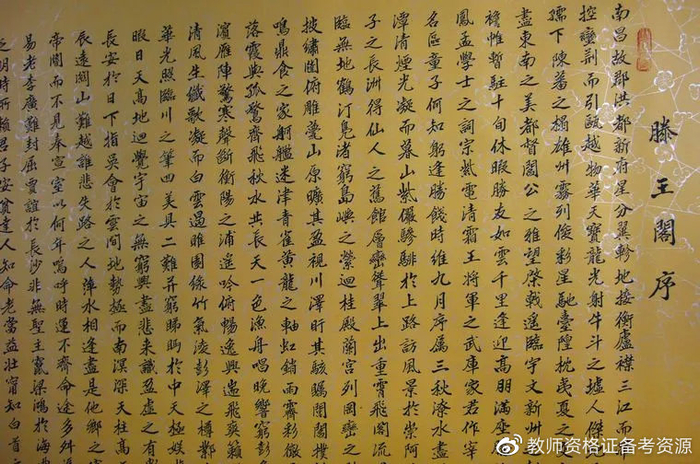 滕王閣序
南昌故郡洪都新府星分翼軫地接衡廬襟三江而
控蠻荊而引甌越物華天寶龍光射牛斗之墟人傑
孺下陳蕃之榻雄州霧列俊彩星馳臺隍枕夷夏之
盡東南之美都督閻公之雅望棨戟遙臨宇文新州
襜帷暫駐十旬休暇勝友如雲千里逢迎高朋滿座
鳳孟學士之詞宗紫電清霜王將軍之武庫家君作宰
名區童子何知躬逢勝餞時維九月序屬三秋潦水盡
潭清煙光凝而暮山紫儼驂騑於上路訪風景於崇阿
子之長洲得仙人之舊館層巒聳翠上出重霄飛閣流
臨無地鶴汀鳧渚窮島嶼之縈迴桂殿蘭宮列岡巒之
披繡闥俯雕甍山原曠其盈視川澤盱其駭矚閭閻撲
鳴鼎食之家舸艦迷津青雀黃龍之軸虹銷雨霽彩徹
落霞與孤鶩齊飛秋水共長天一色漁舟唱晚響窮彭
濱雁陣驚寒聲斷衡陽之浦遙吟俯暢逸興遄飛爽籟
清風生纖歌凝而白雲遏睢園綠竹氣凌彭澤之樽鄴
華光照臨川之筆四美具二難并窮睇眄於中天極娛
暇日天高地迥覺宇宙之無窮興盡悲來識盈虛之有
長安於日下指吳會於雲間地勢極而南溟深天柱高
辰遠關山難越誰悲失路之人萍水相逢盡是他鄉之
帝閽而不見奉宣室以何年嗚呼時運不齊命途多舛
易老李廣難封屈賈誼於長沙非無聖主竄梁鴻於海
之明時所賴君子安貧達人知命老當益壯寧知白首
@教师资格证备考资源